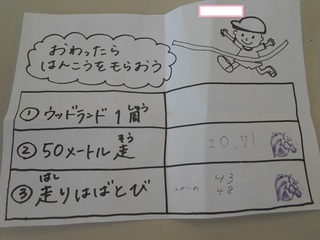 おわったら
はんこうをもらおう
① ウッドランド1周
しゅう
② 50メートル走
そう
20.71
③ 走りはばとび
はし
43
48